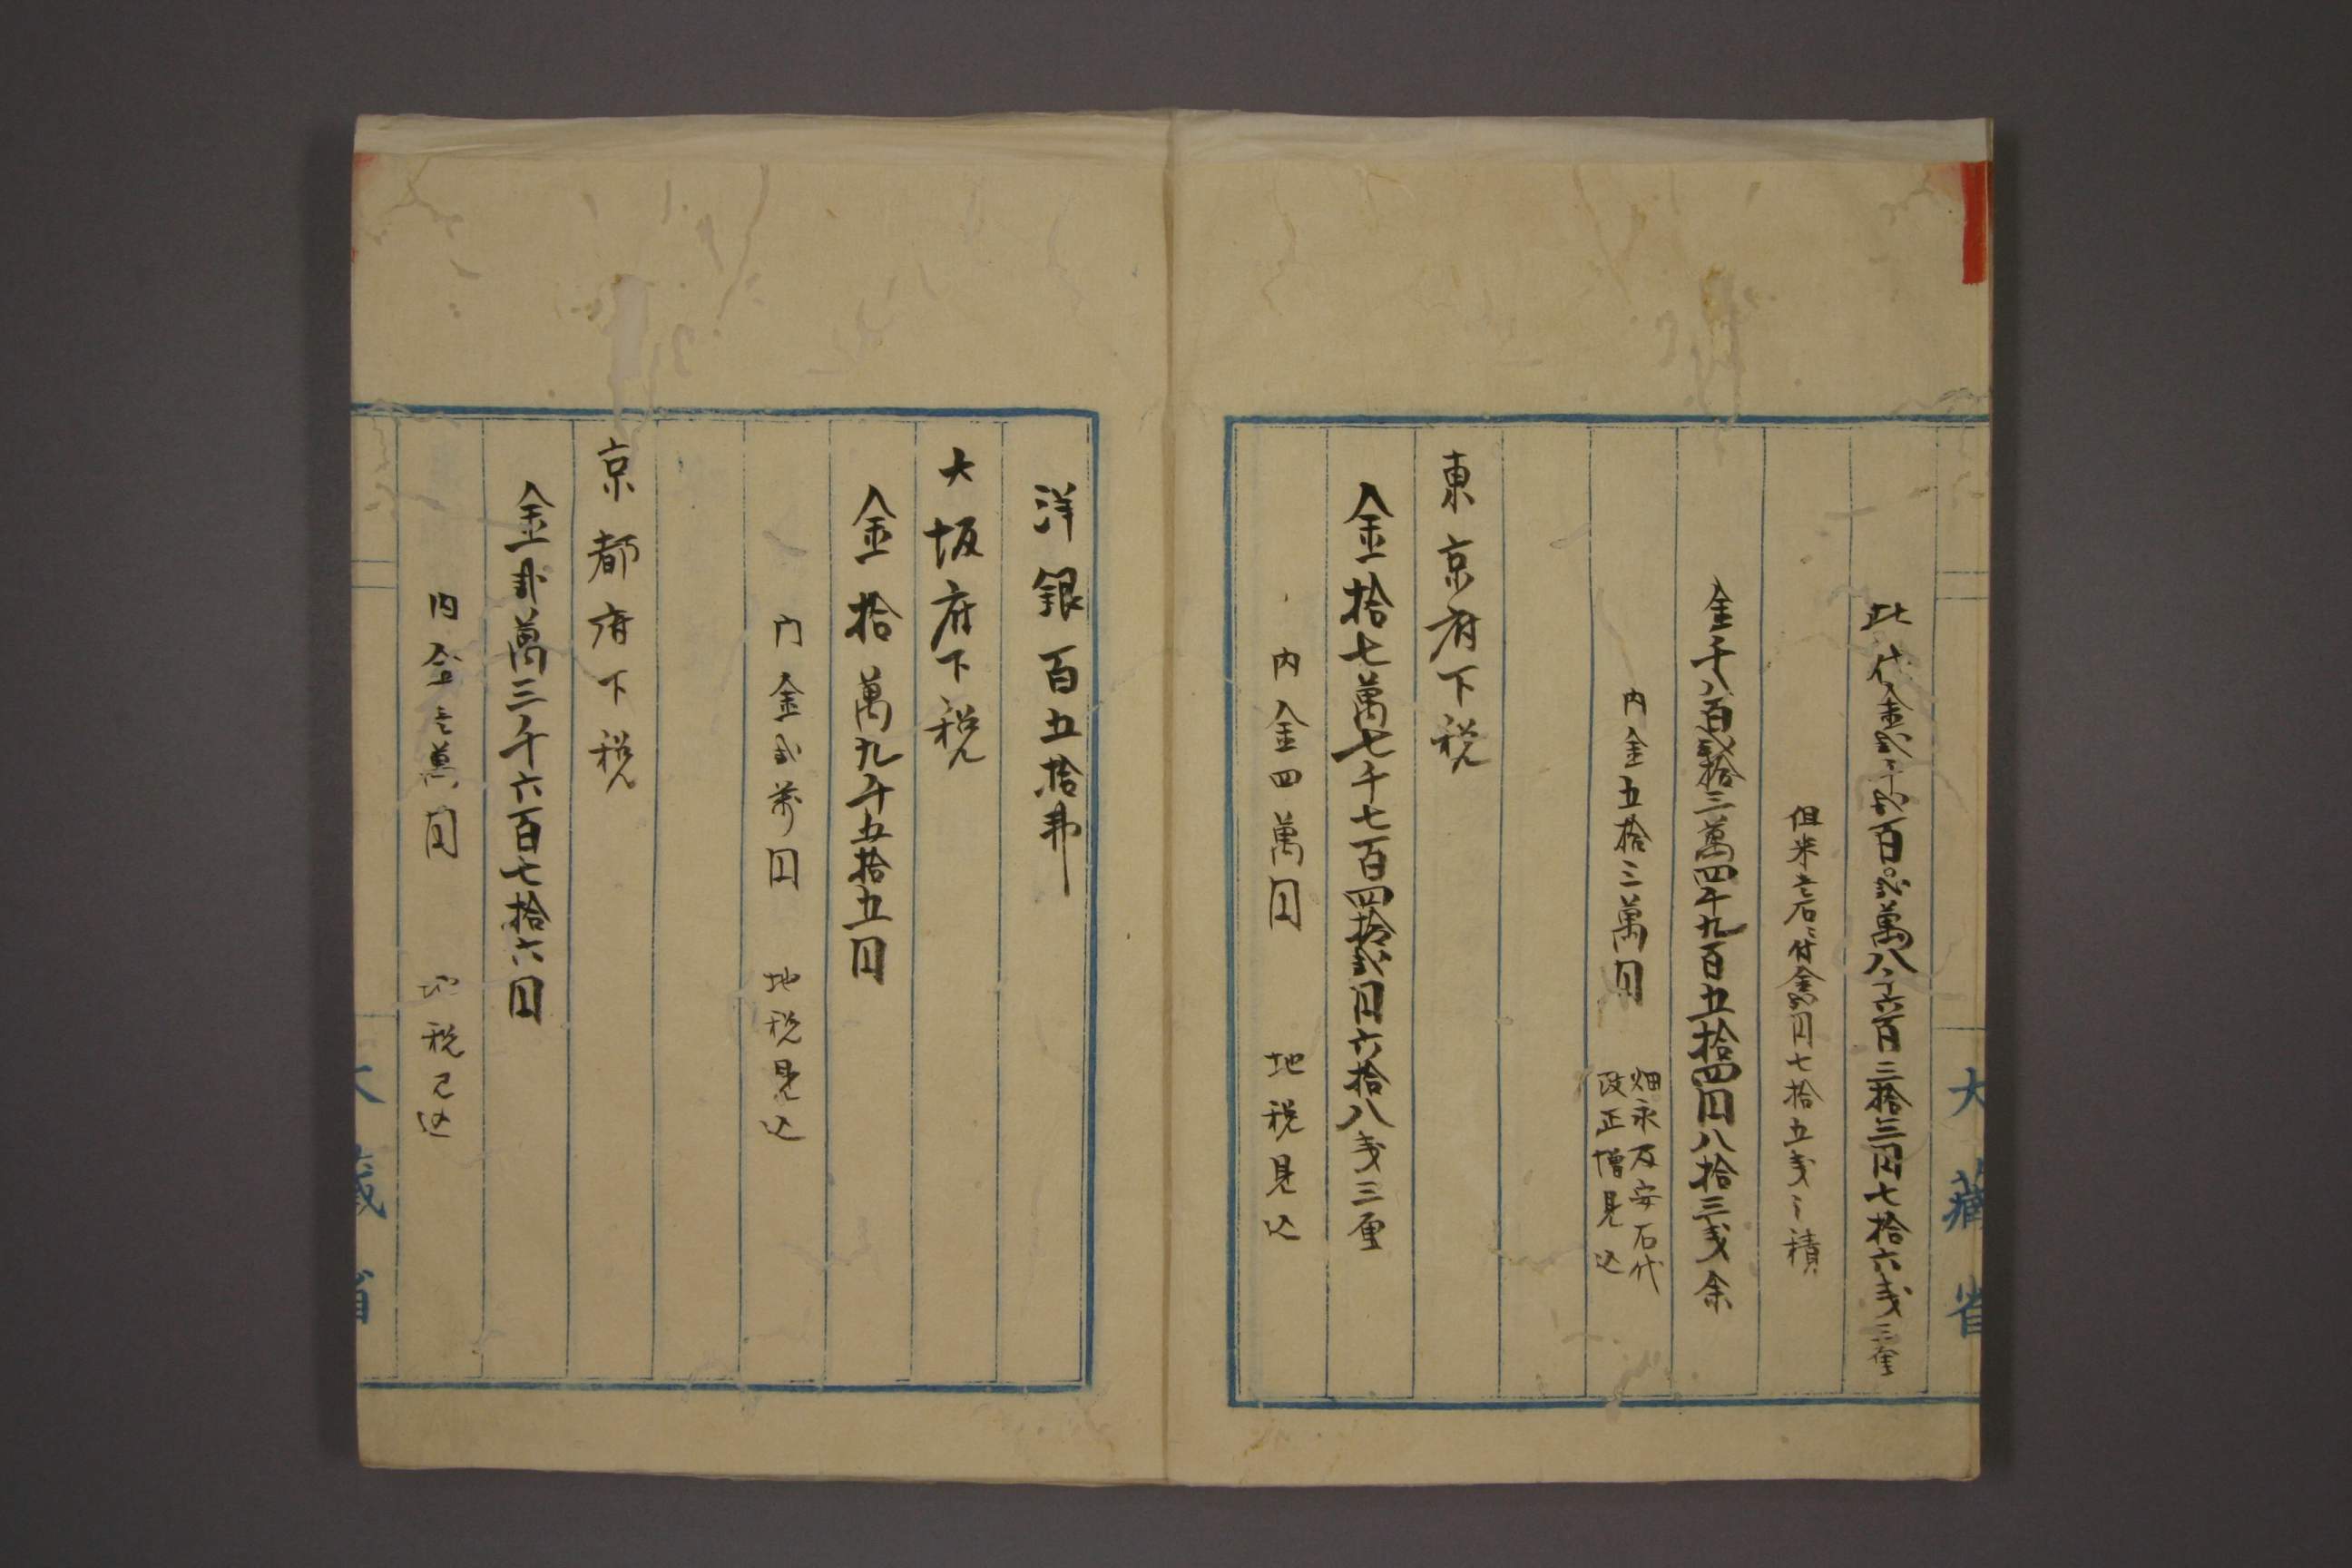 大藏省
此代金弐千弐百弐萬八千六百三拾三円七拾六戋三厘
但米壱石ニ付金弐円七拾五戋之積
金千八百弐拾三萬四千九百五拾四円八拾三戋余
内金五拾三萬円
畑永及安石代
改正増見込
東京府下税
金拾七萬七千七百四拾弐円六拾八戋三厘
内金四萬円 地税見込
洋銀百五拾弗
大坂府下税
金拾萬九千五拾五円
内金弐萬円 地税見込
京都府下税
金弐萬三千六百七拾六円
内金壱萬円 地税見込
大藏省